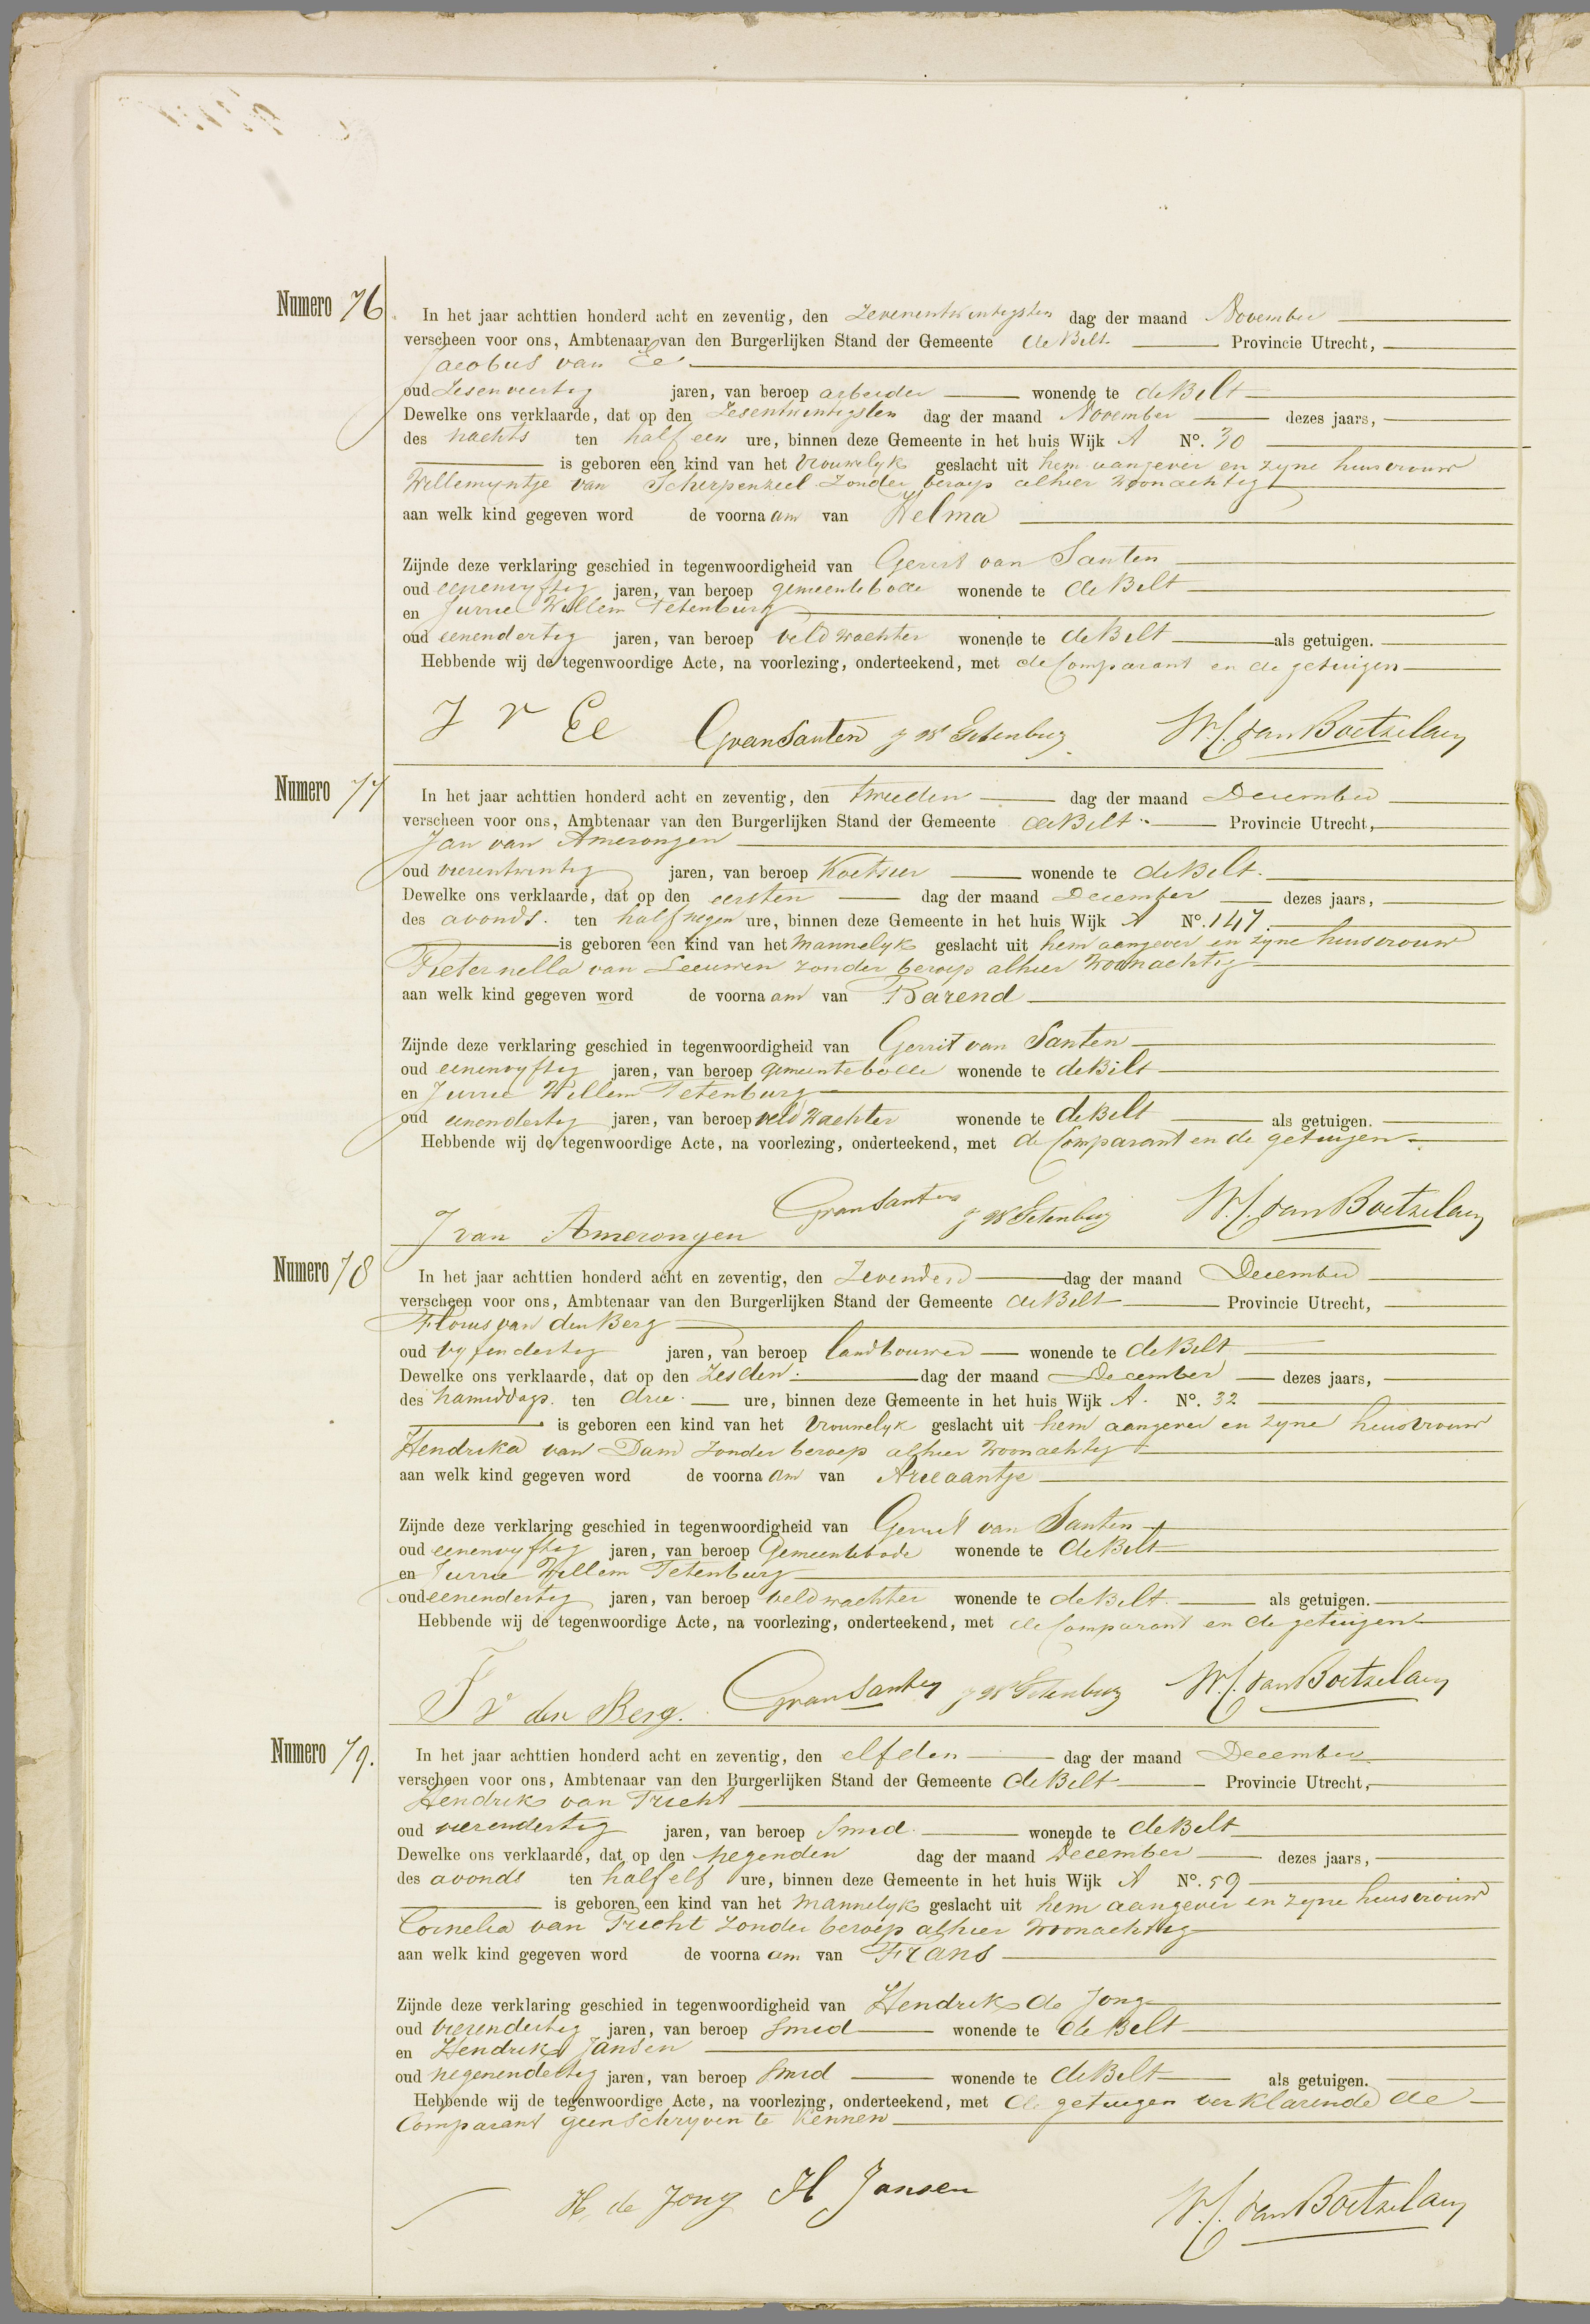 Numero 76
In het jaar achttien honderd acht en zeventig, den Zevenentwintigsten dag der maand November
verscheen voor ons, Ambtenaar van den Burgerlijken Stand der Gemeente de Bilt Provincie Utrecht,
Jacobus van Ee
oud Zesenveertig jaren, van beroep arbeider wonende te de Bilt
Dewelke ons verklaarde, dat op den Zesentwintigsten dag der maand November dezes jaars,
des nachts ten half een ure, binnen deze Gemeente in het huis Wijk A No. 30
is geboren een kind van het Vrouwelyk geslacht uit hem aangever en zyne huisvrouw
Willemyntje van Scherpenzeel Zonder beroep alhier Woonachtig
aan welk kind gegeven word de voornaam van Helma
Zijnde deze verklaring geschied in tegenwoordigheid van Gerrit van Santen
oud eenenvyftig jaren, van beroep gemeentebode wonende te de Bilt
en Jurrie Willem Tetenburg
oud eenendertig jaren, van beroep veldwachter wonende te de Bilt als getuigen.
Hebbende wij de tegenwoordige Acte, na voorlezing, onderteekend, met de Comparant en de getuigen
J v Ee G van Santen J W Tetenburg W.C. van Boetzelaer
Numero 77
In het jaar achttien honderd acht en zeventig, den tweeden dag der maand December
verscheen voor ons, Ambtenaar van den Burgerlijken Stand der Gemeente de Bilt Provincie Utrecht,
Jan van Amerongen
oud vierentwintig jaren, van beroep Koetsier wonende te de Bilt.
Dewelke ons verklaarde, dat op den eersten dag der maand December dezes jaars,
des avonds. ten half negen ure, binnen deze Gemeente in het huis Wijk A No. 147.
is geboren een kind van het Mannelyk geslacht uit hem aangever en zyne huisvrouw
Pieternella van Leeuwen zonder beroep alhier Woonachtig
aan welk kind gegeven word de voornaam van Barend
Zijnde deze verklaring geschied in tegenwoordigheid van Gerrit van Santen
oud eenenvyftig jaren, van beroep gemeentebode wonende te de Bilt
en Jurrie Willem Tetenburg
oud eenendertig jaren, van beroep veldwachter wonende te de Bilt als getuigen.
Hebbende wij de tegenwoordige Acte, na voorlezing, onderteekend, met de Comparant en de getuigen
J van Amerongen G van Santen J W Tetenburg W.C. van Boetzelaer
Numero 78
In het jaar achttien honderd acht en zeventig, den Zevenden dag der maand December
verscheen voor ons, Ambtenaar van den Burgerlijken Stand der Gemeente de Bilt Provincie Utrecht,
Floris van den Berg
oud vyfendertig jaren, van beroep landbouwer wonende te de Bilt
Dewelke ons verklaarde, dat op den Zesden. dag der maand December dezes jaars,
des namiddags. ten drie. ure, binnen deze Gemeente in het huis Wijk A. No. 32
is geboren een kind van het Vrouwelyk geslacht uit hem aangever en zyne huisvrouw
Hendrika van Dam Zonder beroep alhier Woonachtig
aan welk kind gegeven word de voornaam van Ariaantje
Zijnde deze verklaring geschied in tegenwoordigheid van Gerrit van Santen
oud eenenvyftig jaren, van beroep Gemeentebode wonende te de Bilt
en Jurrie Willem Tetenburg
oud eenendertig jaren, van beroep veldwachter wonende te de Bilt. als getuigen.
Hebbende wij de tegenwoordige Acte, na voorlezing, onderteekend, met de Comparant en de getuigen
F v den Berg. G van Santen J W Tetenburg W.C. van Boetzelaer
Numero 79.
In het jaar achttien honderd acht en zeventig, den elfden dag der maand December
verscheen voor ons, Ambtenaar van den Burgerlijken Stand der Gemeente de Bilt Provincie Utrecht,
Hendrik van Tricht
oud vierendertig jaren, van beroep Smid. wonende te de Bilt
Dewelke ons verklaarde, dat op den negenden dag der maand December dezes jaars,
des avonds ten half elf ure, binnen deze Gemeente in het huis Wijk A No. 59
is geboren een kind van het Mannelyk geslacht uit hem aangever en zyne huisvrouw
Cornelia van Tricht Zonder beroep alhier Woonachtig
aan welk kind gegeven word de voornaam van Frans
Zijnde deze verklaring geschied in tegenwoordigheid van Hendrik de Jong
oud vierendertig jaren, van beroep Smid wonende te de Bilt
en Hendrik Jansen
oud negenendertig jaren, van beroep Smid wonende te de Bilt als getuigen.
Hebbende wij de tegenwoordige Acte, na voorlezing, onderteekend, met de getuigen verklarende de
Comparant geen Schryven te Kennen
H. de Jong H Jansen W.C. van Boetzelaer